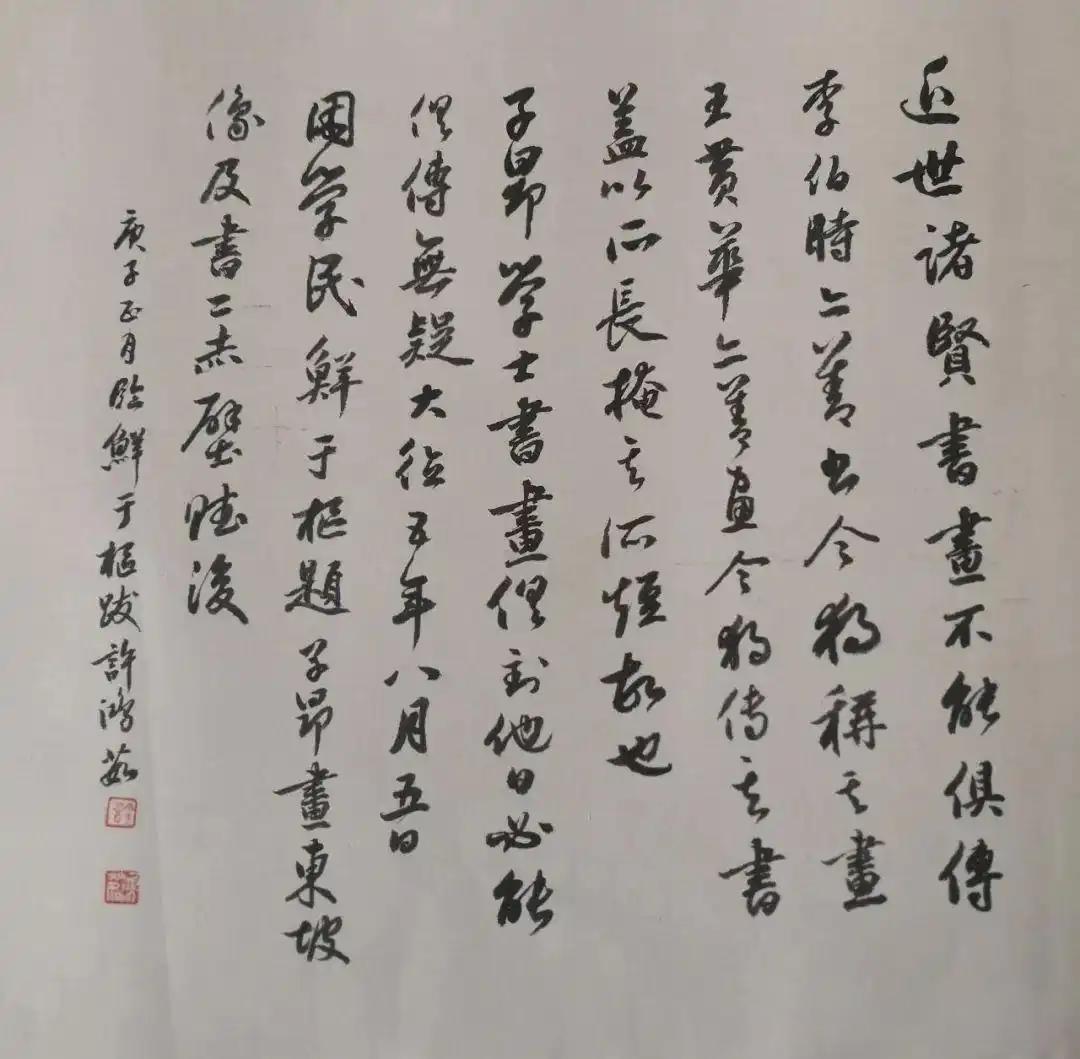 近世诸賢書畫不能俱傳
李伯時亦善书今独稱其畫
王黄華亦善画今独传其書
蓋以所長掩其所短故也
子昂學士書畫俱到他日必能
俱傳無疑大德五年八月五日
困學民鮮于樞題子昂畫東坡
像及書二赤壁賦後
庚子正月临鮮于樞跋許鸿茹